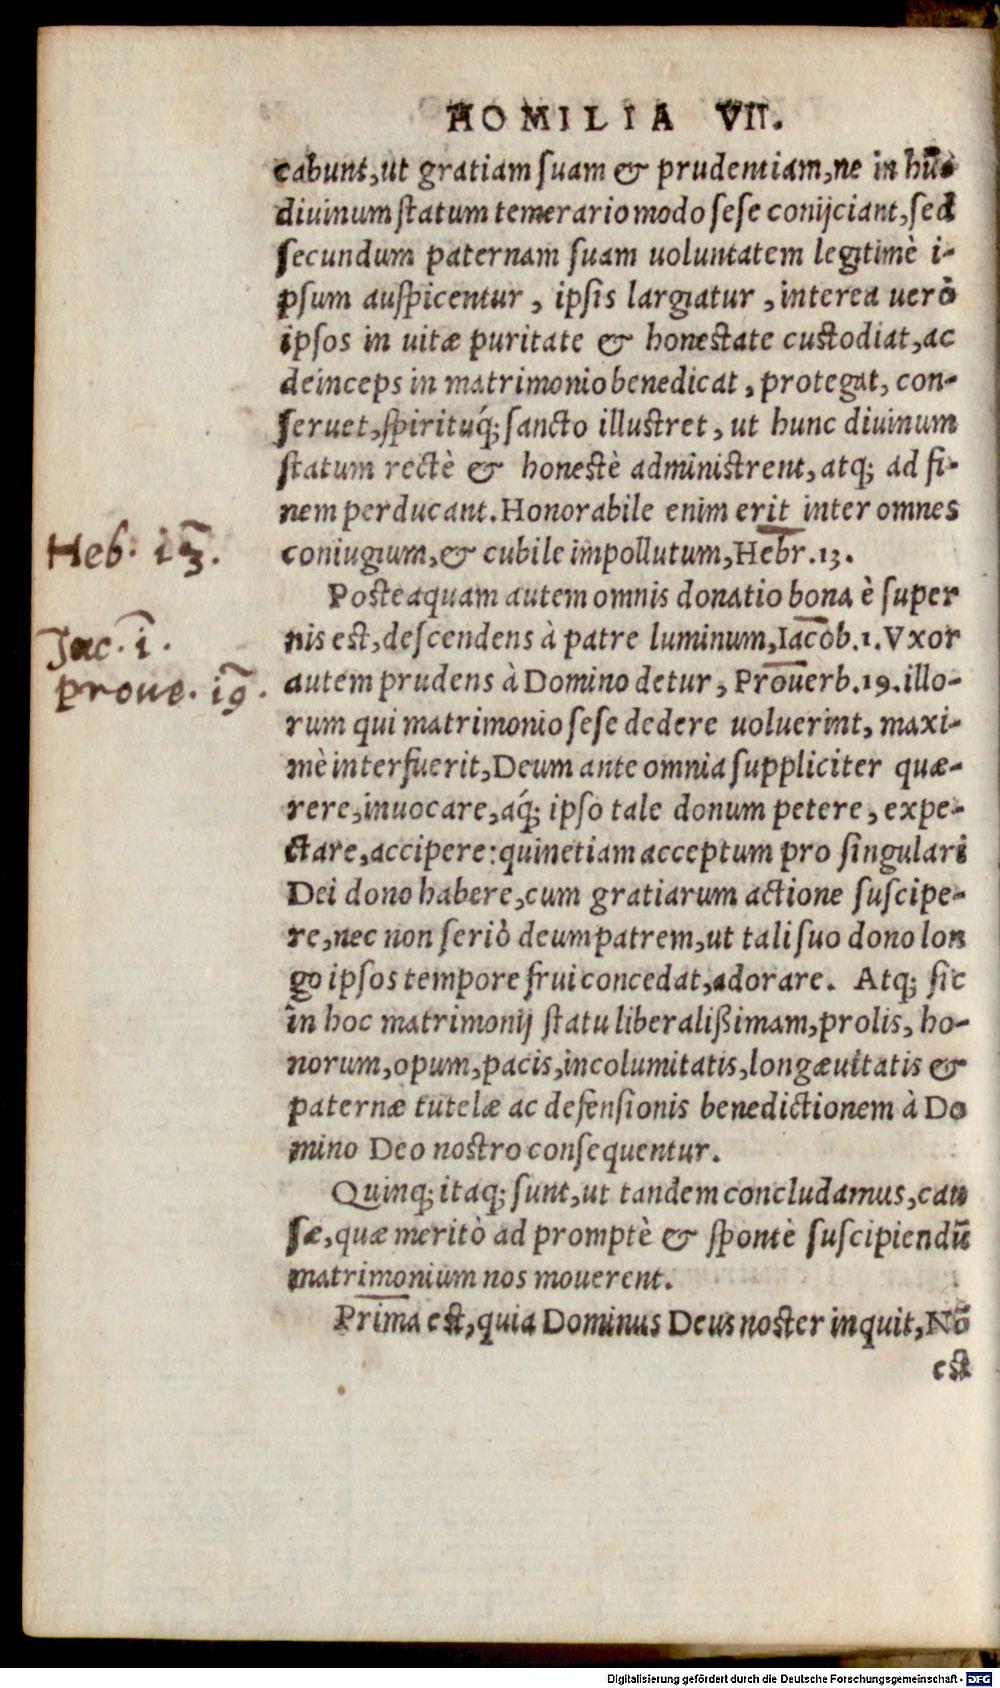 HOMILIA VII.
cabunt,ut gratiam ſuam & prudentiam,ne in hũc
diuinum ſtatum temerario modo ſeſe conijciant,ſed
ſecundum paternam ſuam uoluntatem legitimè i-
pſum auſpicentur, ipſis largiatur, interea uerò
ipſos in uitæ puritate & honeſtate cuſtodiat,ac
deinceps in matrimonio benedicat, protegat, con-
ſeruet,ſpirituq́; ſancto illuſtret, ut hunc diuinum
ſtatum rectè & honeſtè adminiſtrent,atq; ad fi-
nem perducant. Honorabile enim erit inter omnes
coniugium,& cubile impollutum,Hebr.13.
Heb. 13.
Poſteaquam autem omnis donatio bona è ſuper
nis eſt,deſcendens à patre luminum,Iacob.1. Vxor
Jac. 1.
autem prudens à Domino detur, Prouerb.19. illo-
proue. 19.
rum qui matrimonio ſeſe dedere uoluerint, maxi-
mè interfuerit,Deum ante omnia ſuppliciter quæ-
rere,inuocare,aq́; ipſo tale donum petere, expe-
ctare,accipere: quinetiam acceptum pro ſingulari
Dei dono habere,cum gratiarum actione ſuſcipe-
re,nec non ſeriò deum patrem,ut tali ſuo dono lon
go ipſos tempore frui concedat,adorare. Atq; ſic
in hoc matrimonij ſtatu liberalißimam,prolis, ho-
norum,opum,pacis,incolumitatis,longæuitatis &
paternæ tutelæ ac defenſionis benedictionem à Do
mino Deo noſtro conſequentur.
Quinq; itaq; ſunt,ut tandem concludamus,cau
ſæ,quæ meritò ad promptè & ſpontè ſuſcipiendũ
matrimonium nos mouerent.
Prima eſt,quia Dominus Deus noſter inquit,Nõ
eſt
Digitalisierung gefördert durch die Deutsche Forschungsgemeinschaft - DFG